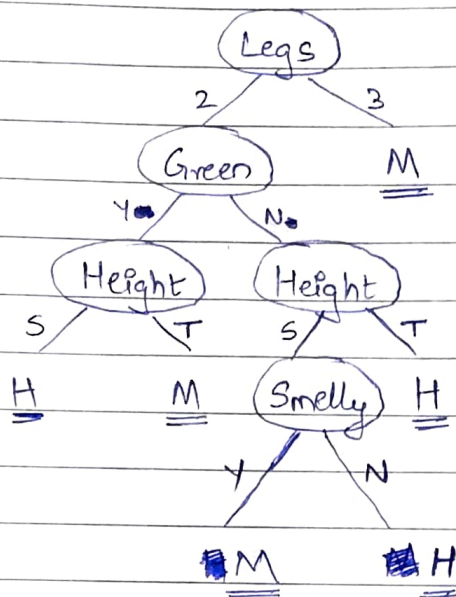 Legs
2 3
Green M
Y N
Height Height
S T S T
H M Smelly H
Y N
M H